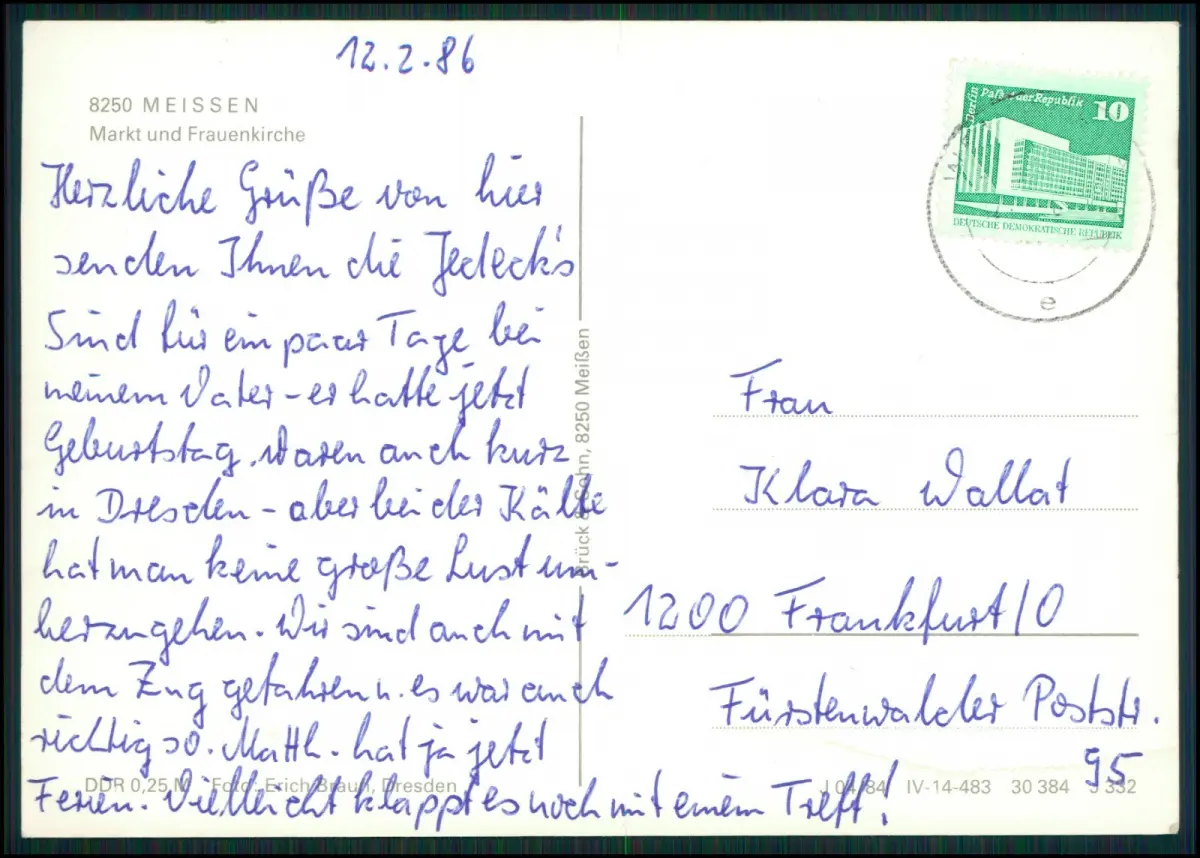 12.2.86
8250 MEISSEN
Markt und Frauenkirche
Herzliche Grüße von hier
senden Ihnen die Jedeck's
Sind für ein paar Tage bei
meinem Vater – er hatte jetzt
Geburtstag. Waren auch kurz
in Dresden – aber bei der Kälte
hat man keine große Lust um-
herzugehen. Wir sind auch mit
dem Zug gefahren u. es war auch
richtig so. Matth. hat ja jetzt
Ferien. Vielleicht klappt es noch mit einem Treff!
DDR 0,25 M Foto: Erich Braun, Dresden
Brück & Sohn, 8250 Meißen
Berlin Palast der Republik 10
DEUTSCHE DEMOKRATISCHE REPUBLIK
e
Frau
Klara Wallat
1200 Frankfurt/O
Fürstenwalder Poststr.
95
J 04/84 IV-14-483 30 384 J 332